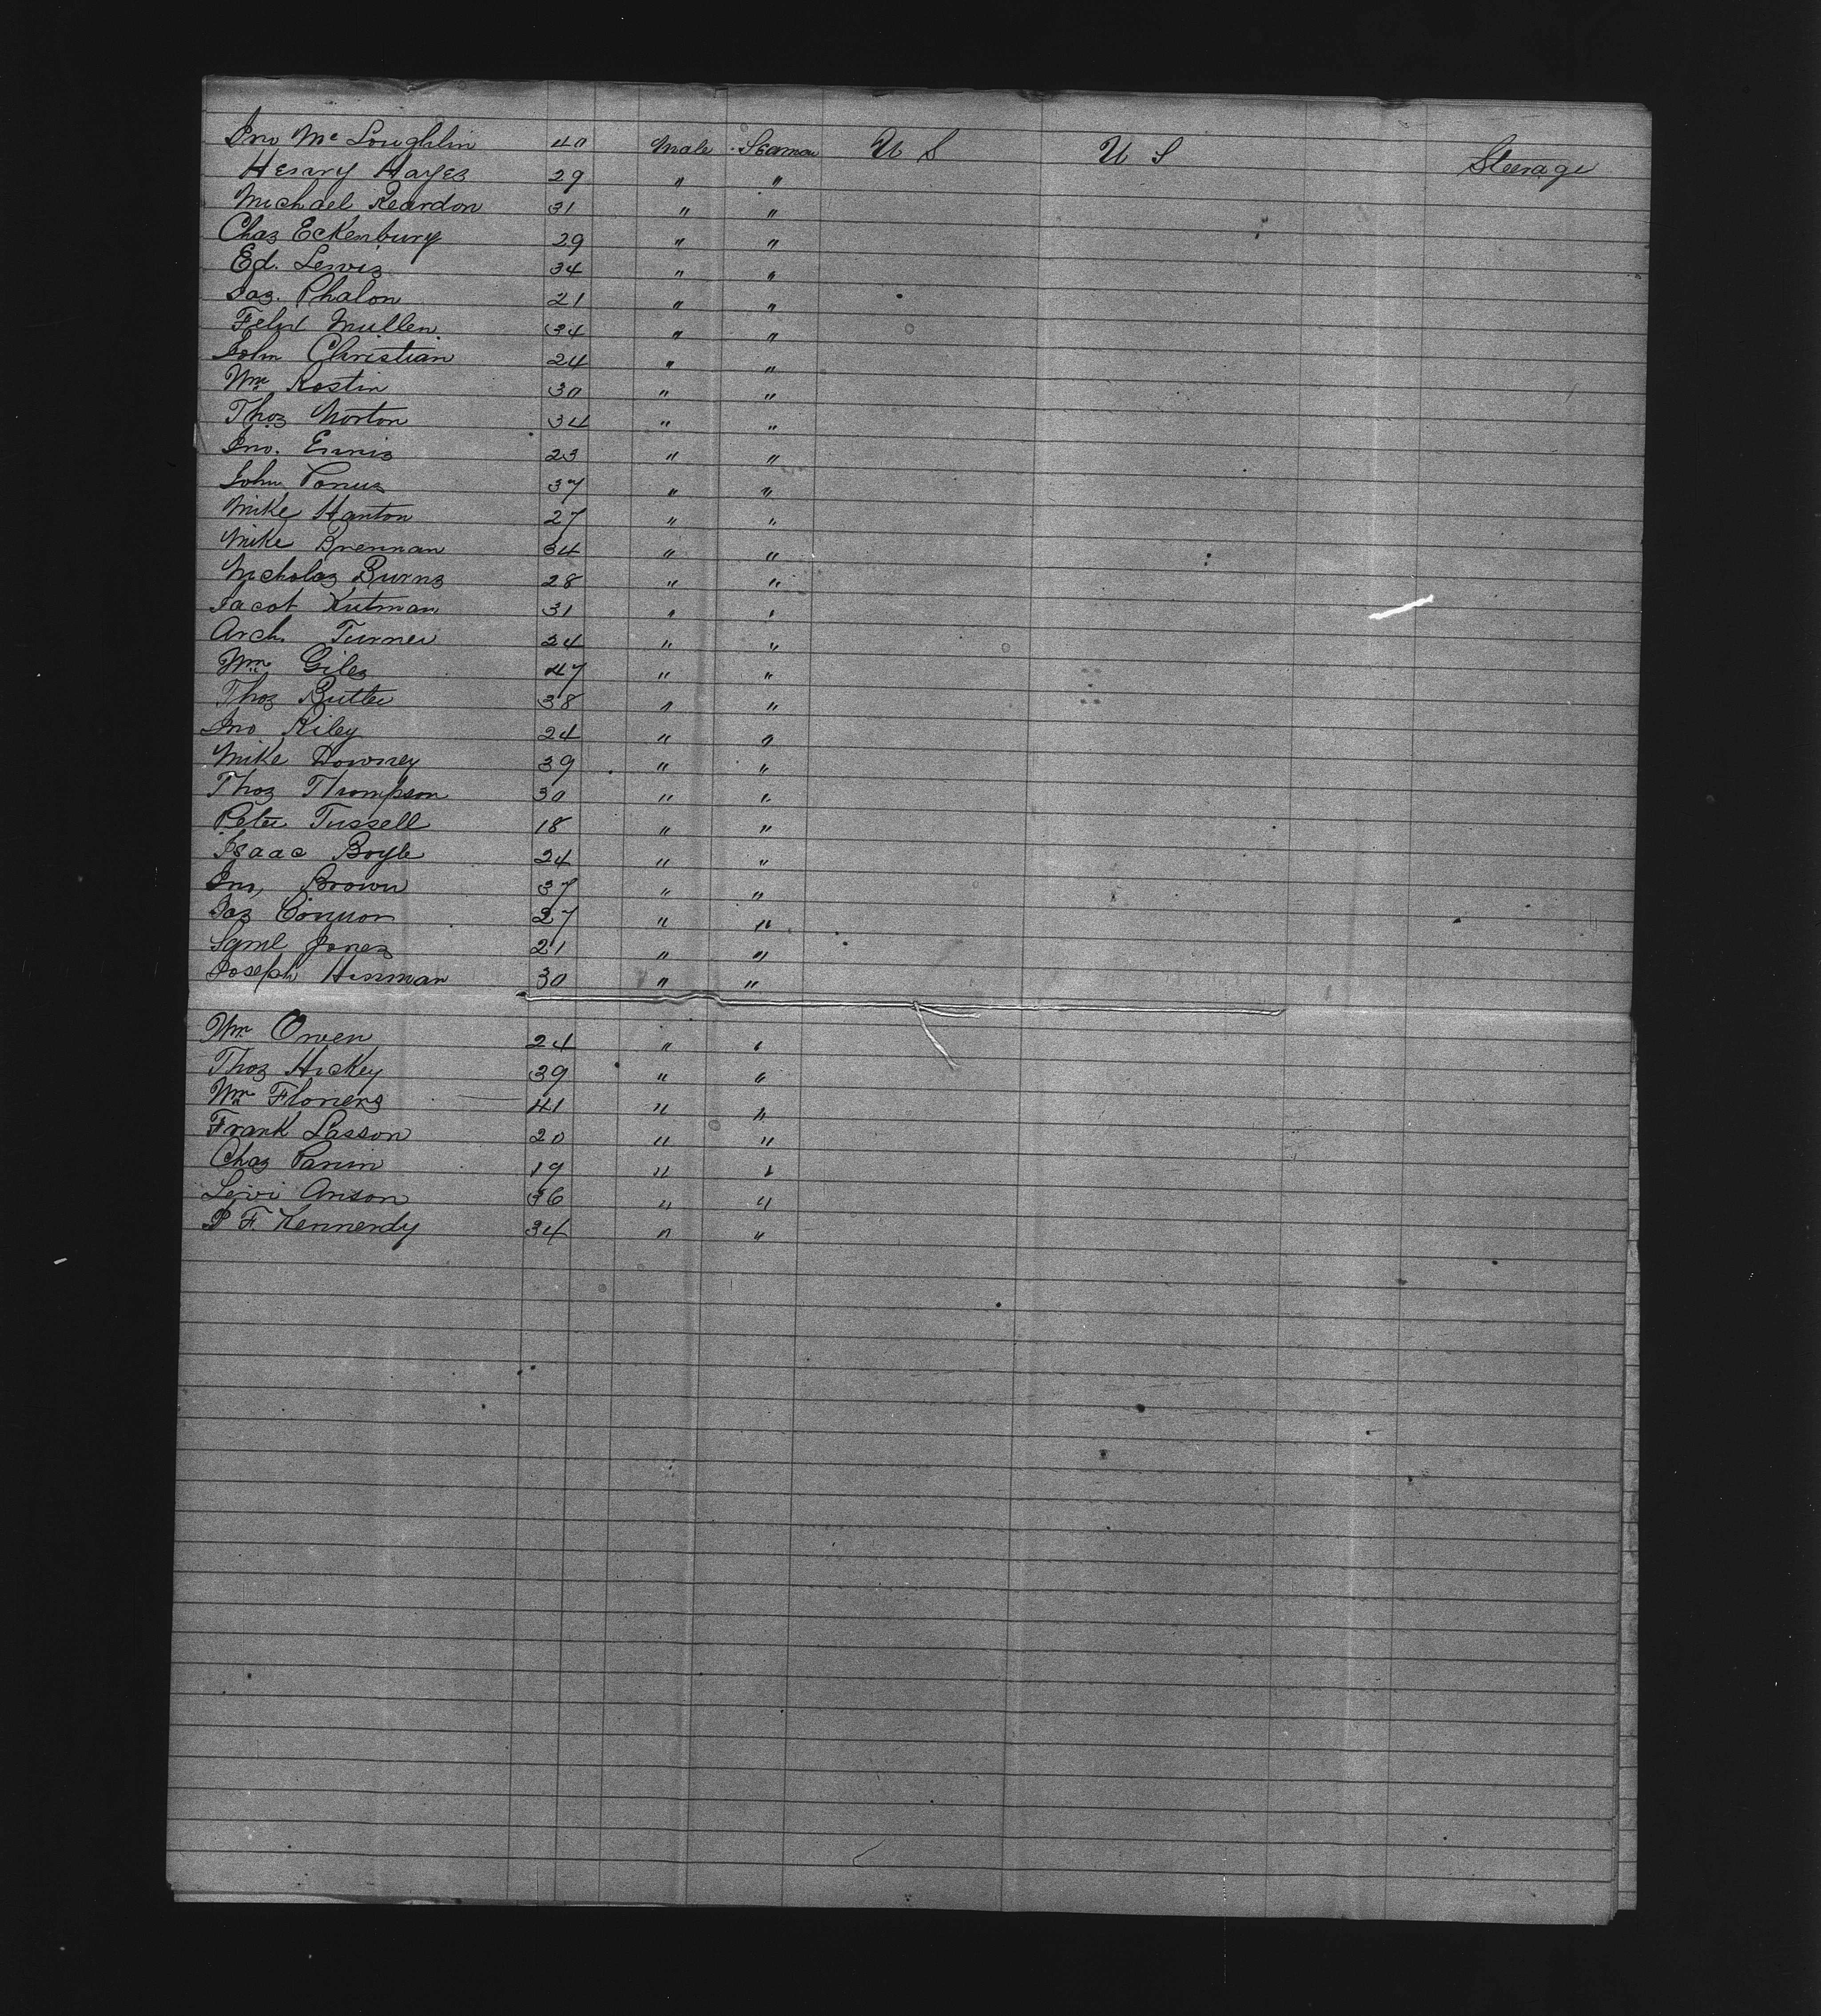 Jno McLoughlin 40 Male Seaman U S U S Steerage
Henry Hayes 29 " "
Michael Reardon 31 " "
Chas Eckenburg 29 " "
Ed. Lewis 34 " "
Jas. Phalon 21 " "
Felix Mullen 34 " "
John Christian 24 " "
Wm Rostin 30 " "
Thos Norton 34 " "
Jno. Ennis 23 " "
John 37 " "
Mike Hanton 27 " "
Mike Brennan 34 " "
Nicholas Burns 28 " "
Jacob Kutman 31 " "
Arch. Turner 24 " "
Wm Giles 47 " "
Thos Butler 38 " "
Jno Riley 24 " "
Mike Downey 39 " "
Thos Thompson 30 " "
Peter Tussell 18 " "
Isaac Boyle 24 " "
Jno, Brown 37 " "
Jas Connor 27 " "
Saml Jones 21 " "
Joseph Hinman 30 " "
Wm Owen 24 " "
Thos Hickey 39 " "
Wm Flowers 41 " "
Frank Lasson 20 " "
Chas 19 " "
Levi Anson 36 " "
P F. Kennerdy 34 " "